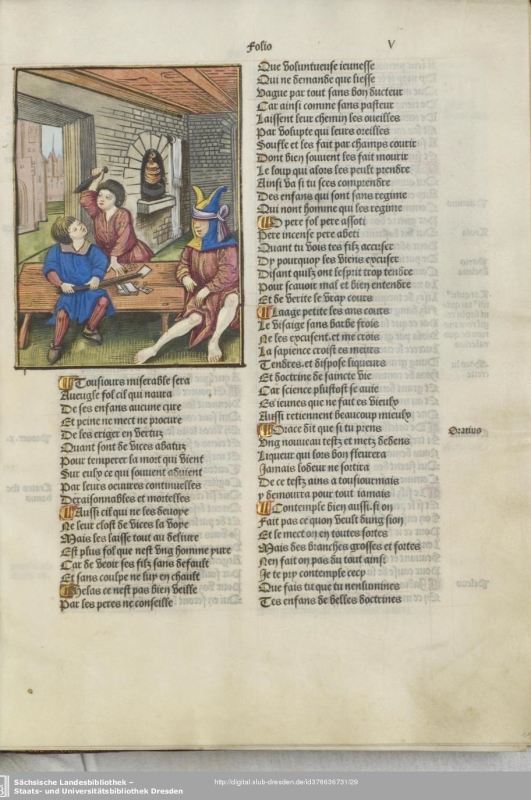 Folio V
Tousiours miserable sera
Aueugle fol cil qui naura
De ses enfans aucune cure
Et peine ne mect ne procure
De les eriger en vertuz
Quant sont de vices abatuz
Pour temperer la mort qui vient
Sur eulx ce qui souuent aduient
Par leurs oeuures continuelles
Deraisonnables et mortelles
Aussi cil qui ne les deuoye
Ne leur clost de vices la voye
Mais les laisse tout au deliure
Est plus fol que nest vng homme yure
Car de veoir ses filz sans default
Et sans coulpe ne luy en chault
Helas ce nest pas bien veille
Par les peres ne conseille
Que voluntueuse ieunesse
Qui ne demande que liesse
Vague par tout sans bon ducteur
Car ainsi comme sans pasteur
Laissent leur chemin les oueilles
Par volupte qui leurs oreilles
Souffle et les fait par champs courir
Dont bien souuent les fait mourir
Le loup qui alors les peult prendre
Ainsi va si tu sces comprendre
Des enfans qui sont sans regime
Qui nont homme qui les regime
O pere fol pere assoti
Pere incense pere abeti
Quant tu vois tes filz accuser
Dy pourquoy les viens excuser
Disant quilz ont lesprit trop tendre
Pour scauoir mal et bien entendre
Et de verite le vray cours
Laage petite les ans cours
Le visaige sans barbe frois
Ne les excusent. et me crois
La sapience croist es meurs
Tendres. et dispose liqueurs
Et doctrine de saincte vie
Car science plustost se auie
Es ieunes que ne fait es vieulx
Aussi retiennent beaucoup mieulx
Orace dit que si tu prens
Vng nouueau testz et metz dedens
Liqueur qui lors bon fleurera
Jamais lodeur ne sortira
De ce testz ains a tousiourmais
y demourra pour tout iamais
Contemple bien aussi. si on
Fait pas ce quon veult dung sion
Et le mect on en toutes sortes
Mais des branches grosses et fortes
Nen fait on pas du tout ainsi
Je te pry contemple cecy
Que fais tu que tu nenlumines
Tes enfans de belles doctrines
Oratius
Sächsische Landesbibliothek –
Staats- und Universitätsbibliothek Dresden
http://digital.slub-dresden.de/id376636731/29